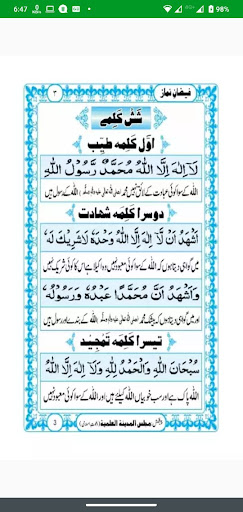 6:47
98%
٣
فیضانِ نماز
شش کلمے
اوّل کلمہ طیّب
لَآ اِلٰهَ اِلَّا اللّٰهُ مُحَمَّدٌ رَّسُوْلُ اللّٰهِ
اللہ کے سوا کوئی عبادت کے لائق نہیں محمد اللہ کے رسول ہیں
دوسرا کلمہ شہادت
اَشْهَدُ اَنْ لَّآ اِلٰهَ اِلَّا اللّٰهُ وَحْدَهٗ لَاشَرِيْكَ لَهٗ
میں گواہی دیتا ہوں کہ اللہ کے سوا کوئی معبود نہیں وہ اکیلا ہے اس کا کوئی شریک نہیں
وَاَشْهَدُ اَنَّ مُحَمَّدًا عَبْدُهٗ وَرَسُوْلُهٗ
اور میں گواہی دیتا ہوں کہ بیشک محمد اللہ کے بندے اور رسول ہیں
تیسرا کلمہ تمجید
سُبْحَانَ اللّٰهِ وَالْحَمْدُ لِلّٰهِ وَلَآ اِلٰهَ اِلَّا اللّٰهُ
اللہ پاک ہے اور سب خوبیاں اللہ کیلئے ہیں اور اللہ کے سوا کوئی معبود نہیں
3
مجلس المدینة العلمیة